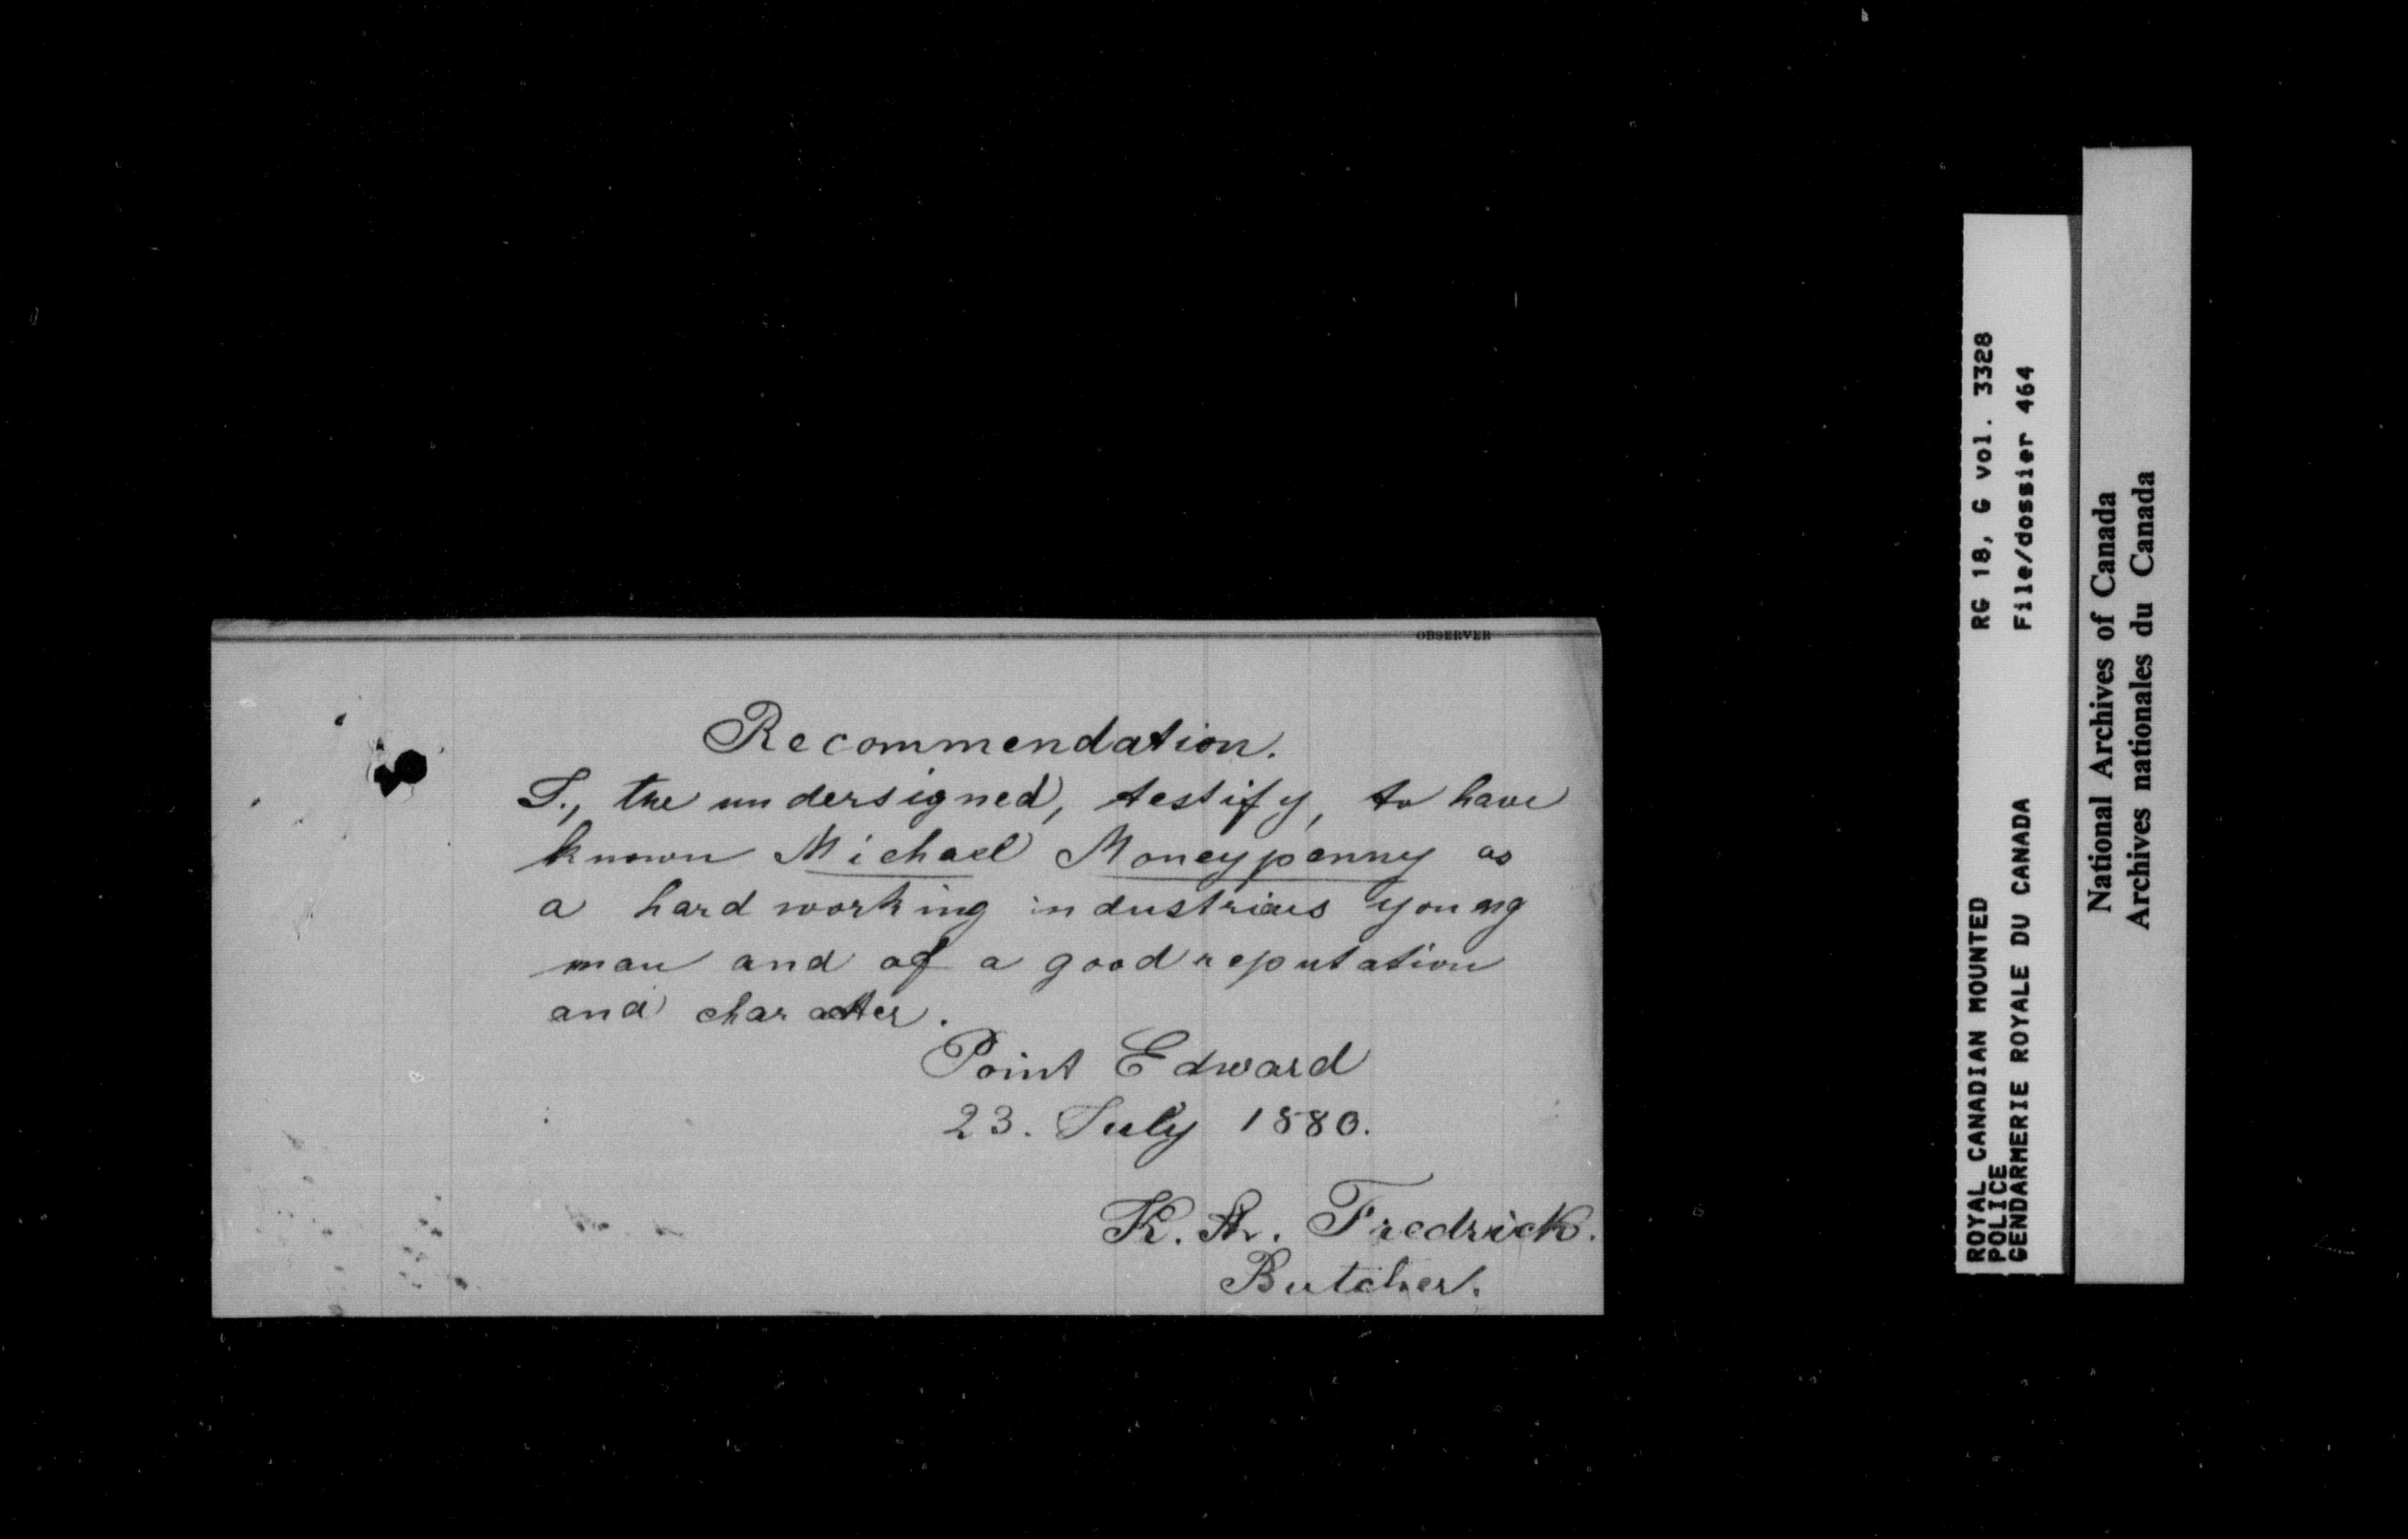 OBSERVER
Recommendation.
I., the undersigned, testify, to have
known Michael Moneypenny as
a hard working industrious young
man and of a good reputation
and character.
Point Edward
23. July 1880.
K. Fredrick.
Butcher.
ROYAL CANADIAN MOUNTED RG 18, G vol. 3328
POLICE
GENDARMERIE ROYALE DU CANADA File/dossier 464
National Archives of Canada
Archives nationales du Canada